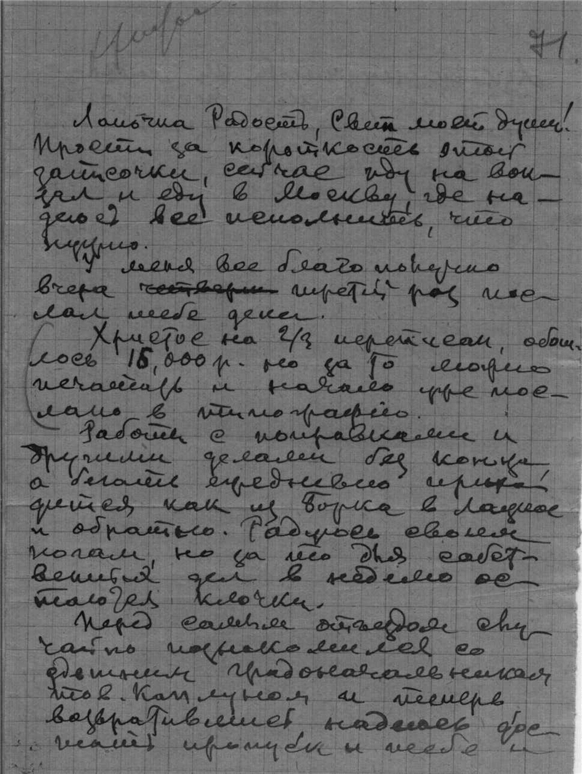 71.
Лапочка Радость, Свет моей души!
Прости за короткость этой
записочки, сейчас иду на вок-
зал и еду в Москву, где на-
деюсь все исполнить, что
нужно.
У меня все благополучно
вчера четверты третий раз пос-
лал тебе денег.
Христос на 2/3 переписан, обош-
лось 15,000 р. но за то можно
печатать и начало уже пос-
лано в типографию.
Работы с поправками и
другими делами без конца,
а бегать ежедневно прихо-
дится как из Борка в Лацкое
и обратно. Радуюсь своим
ногам, но за то для собст-
венных дел в неделю ос-
таются клочки.
Перед самым отъездом слу-
чайно познакомился со
здешним градоначальником
тов. Каплуном и теперь
возвратившись надеюсь дос-
тать пропуск и тебе и